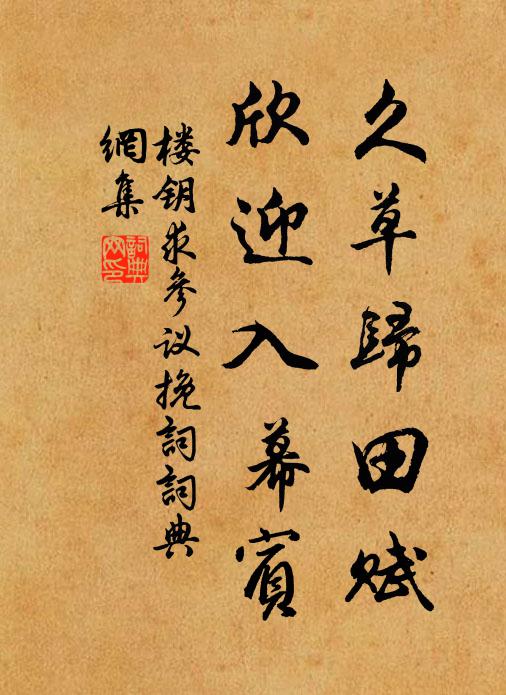 久草歸田赋
欣迎入幕賓
楼钥求參议挽詞詞典
網集
詞典网印